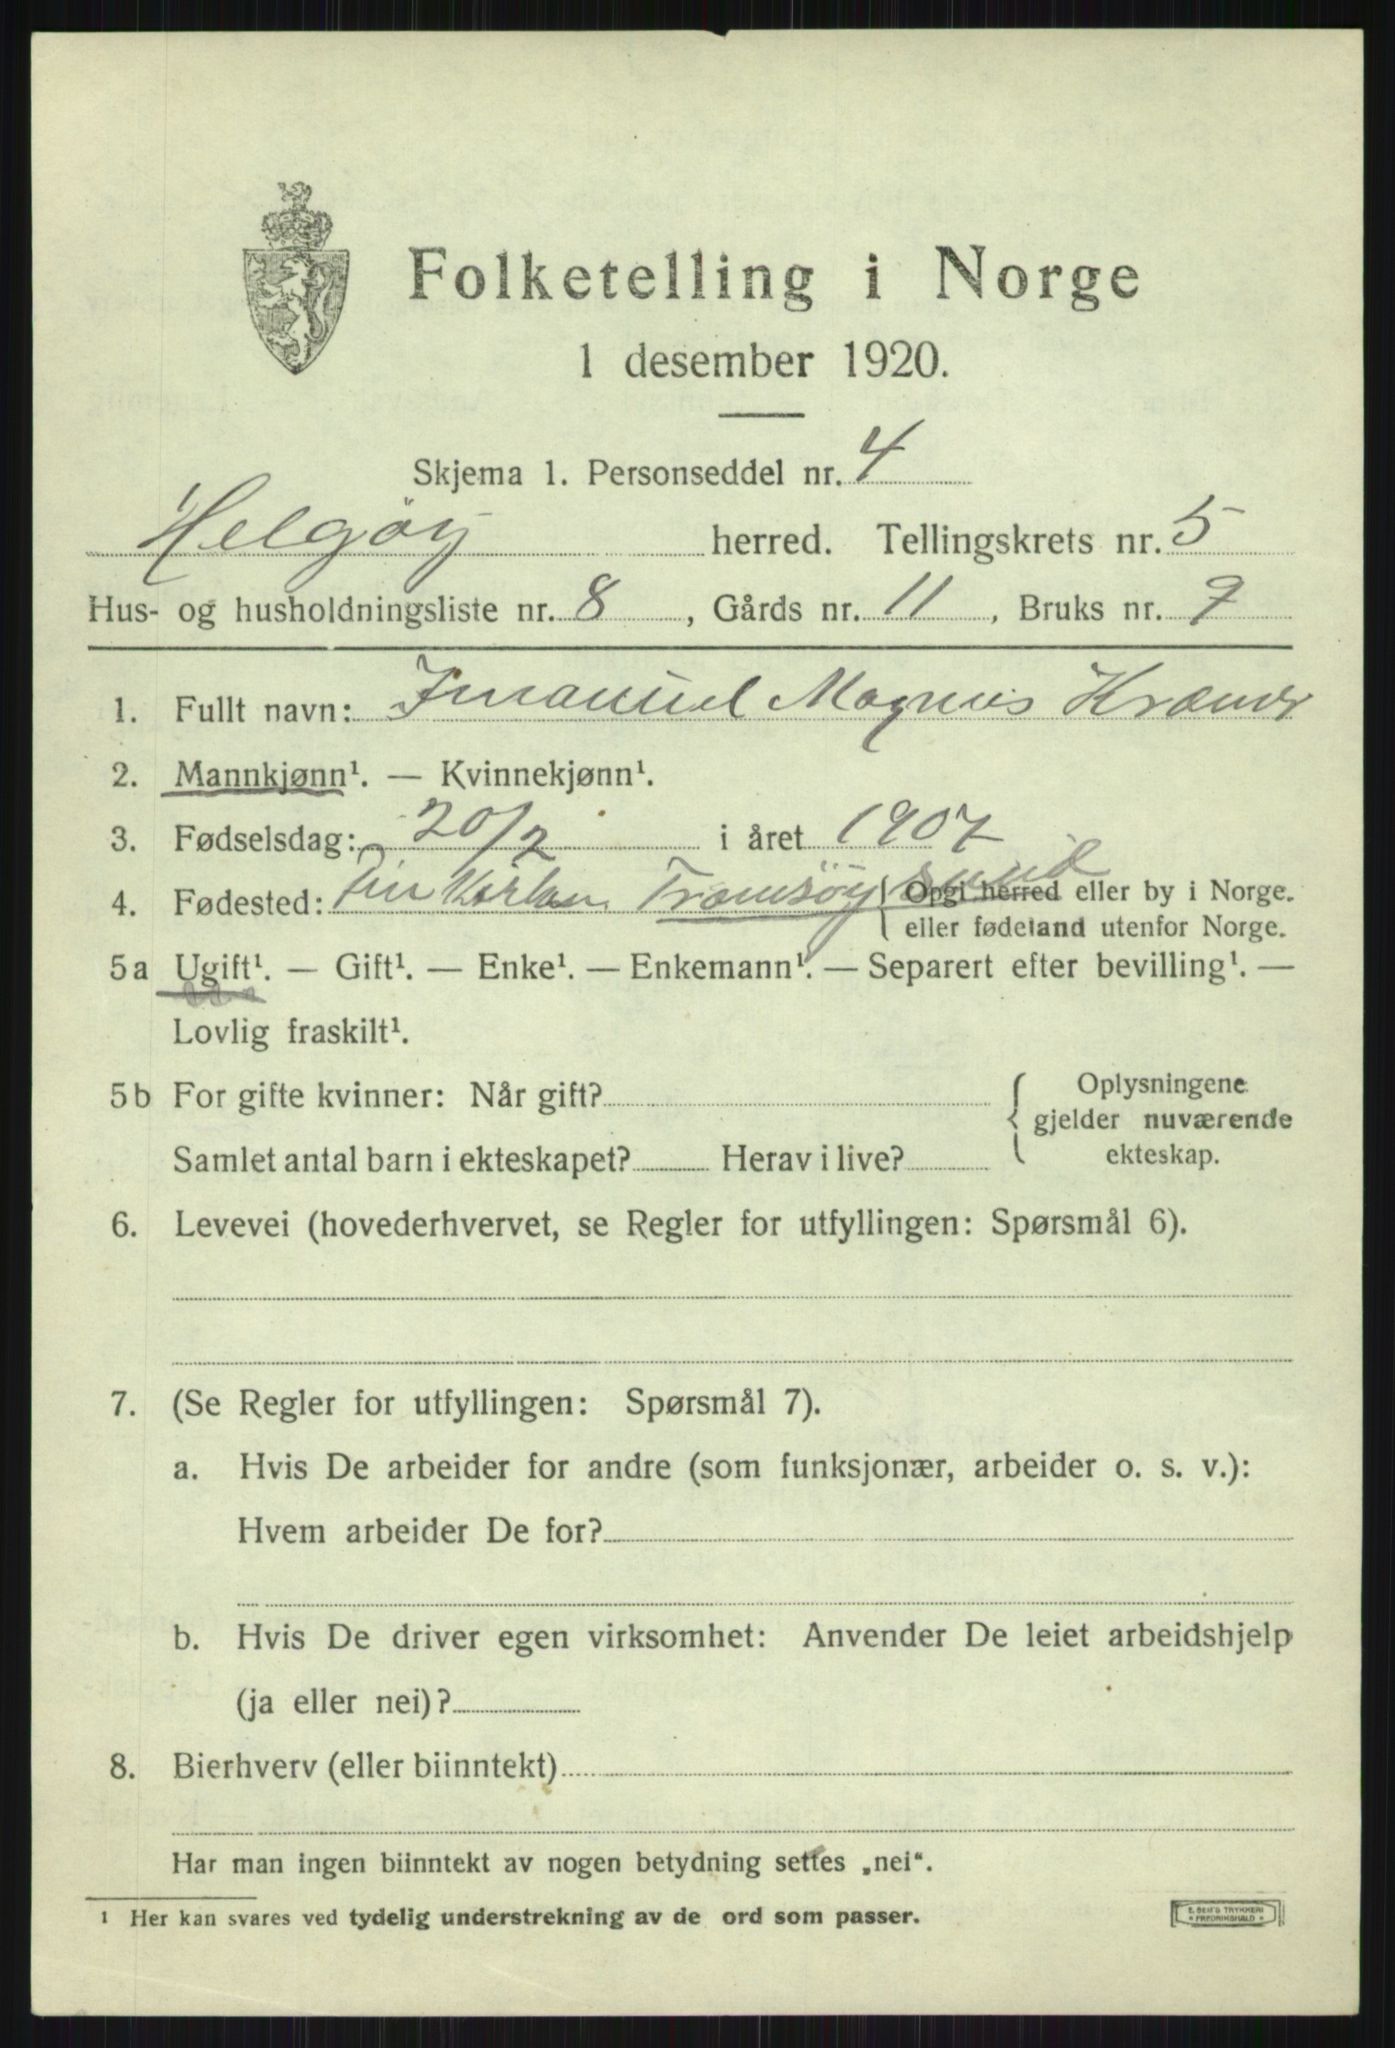 Folketelling i Norge
1 desember 1920.
Skjema 1. Personseddel nr. 4
Helgøy herred. Tellingskrets nr. 5
Hus- og husholdningsliste nr. 8, Gårds nr. 11, Bruks nr. 9
1. Fullt navn: Imanuel Magnus Kræmer
2. Mannkjønn¹. — Kvinnekjønn¹.
3. Fødselsdag: 20/2 i året 1907
4. Fødested: Tromsøysund { Opgi herred eller by i Norge.
eller fødeland utenfor Norge.
5a Ugift¹. — Gift¹. — Enke¹. — Enkemann¹. — Separert efter bevilling¹. —
Lovlig fraskilt¹.
5b For gifte kvinner: Når gift? { Oplysningene
gjelder nuværende
Samlet antal barn i ekteskapet? Herav i live? ekteskap.
6. Levevei (hovederhvervet, se Regler for utfyllingen: Spørsmål 6).
7. (Se Regler for utfyllingen: Spørsmål 7).
a. Hvis De arbeider for andre (som funksjonær, arbeider o. s. v.):
Hvem arbeider De for?
b. Hvis De driver egen virksomhet: Anvender De leiet arbeidshjelp
(ja eller nei)?
8. Bierhverv (eller biinntekt)
Har man ingen biinntekt av nogen betydning settes „nei“.
¹ Her kan svares ved tydelig understrekning av de ord som passer.
TRYKKERI
FREDRIKSHALD